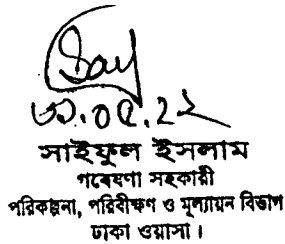 ৩১.০৫.২২
সাইফুল ইসলাম
গবেষণা সহকারী
পরিকল্পনা, পরিবীক্ষণ ও মূল্যায়ন বিভাগ
ঢাকা ওয়াসা।